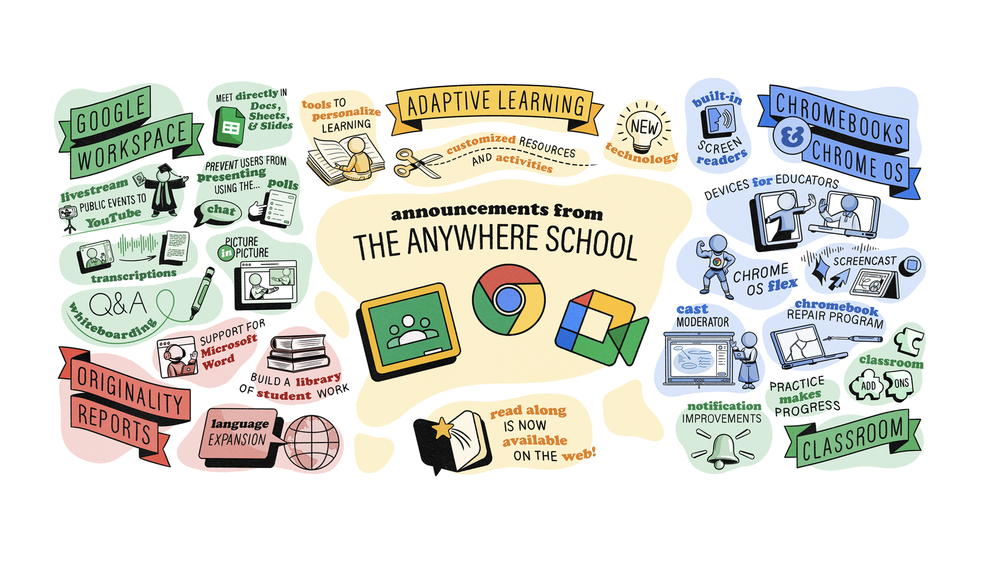 GOOGLE
WORKSPACE
MEET directly IN
Docs,
Sheets,
& Slides
livestream
PUBLIC EVENTS TO
YouTube
PREVENT USERS FROM
presenting
USING THE...
polls
chat
transcriptions
PICTURE
in PICTURE
Q&A
whiteboarding
ORIGINALITY
REPORTS
SUPPORT FOR
Microsoft
Word
BUILD A library
OF student WORK
language
EXPANSION
tools TO
personalize
LEARNING
ADAPTIVE LEARNING
customized RESOURCES
AND activities
NEW
technology
announcements from
THE ANYWHERE SCHOOL
read along
IS NOW
available
ON THE web!
built-in
SCREEN
readers
CHROMEBOOKS
&
CHROME OS
DEVICES for EDUCATORS
CHROME
OS flex
SCREENCAST
cast
MODERATOR
chromebook
REPAIR PROGRAM
classroom
ADD
ONS
PRACTICE
makes
PROGRESS
notification
IMPROVEMENTS
CLASSROOM